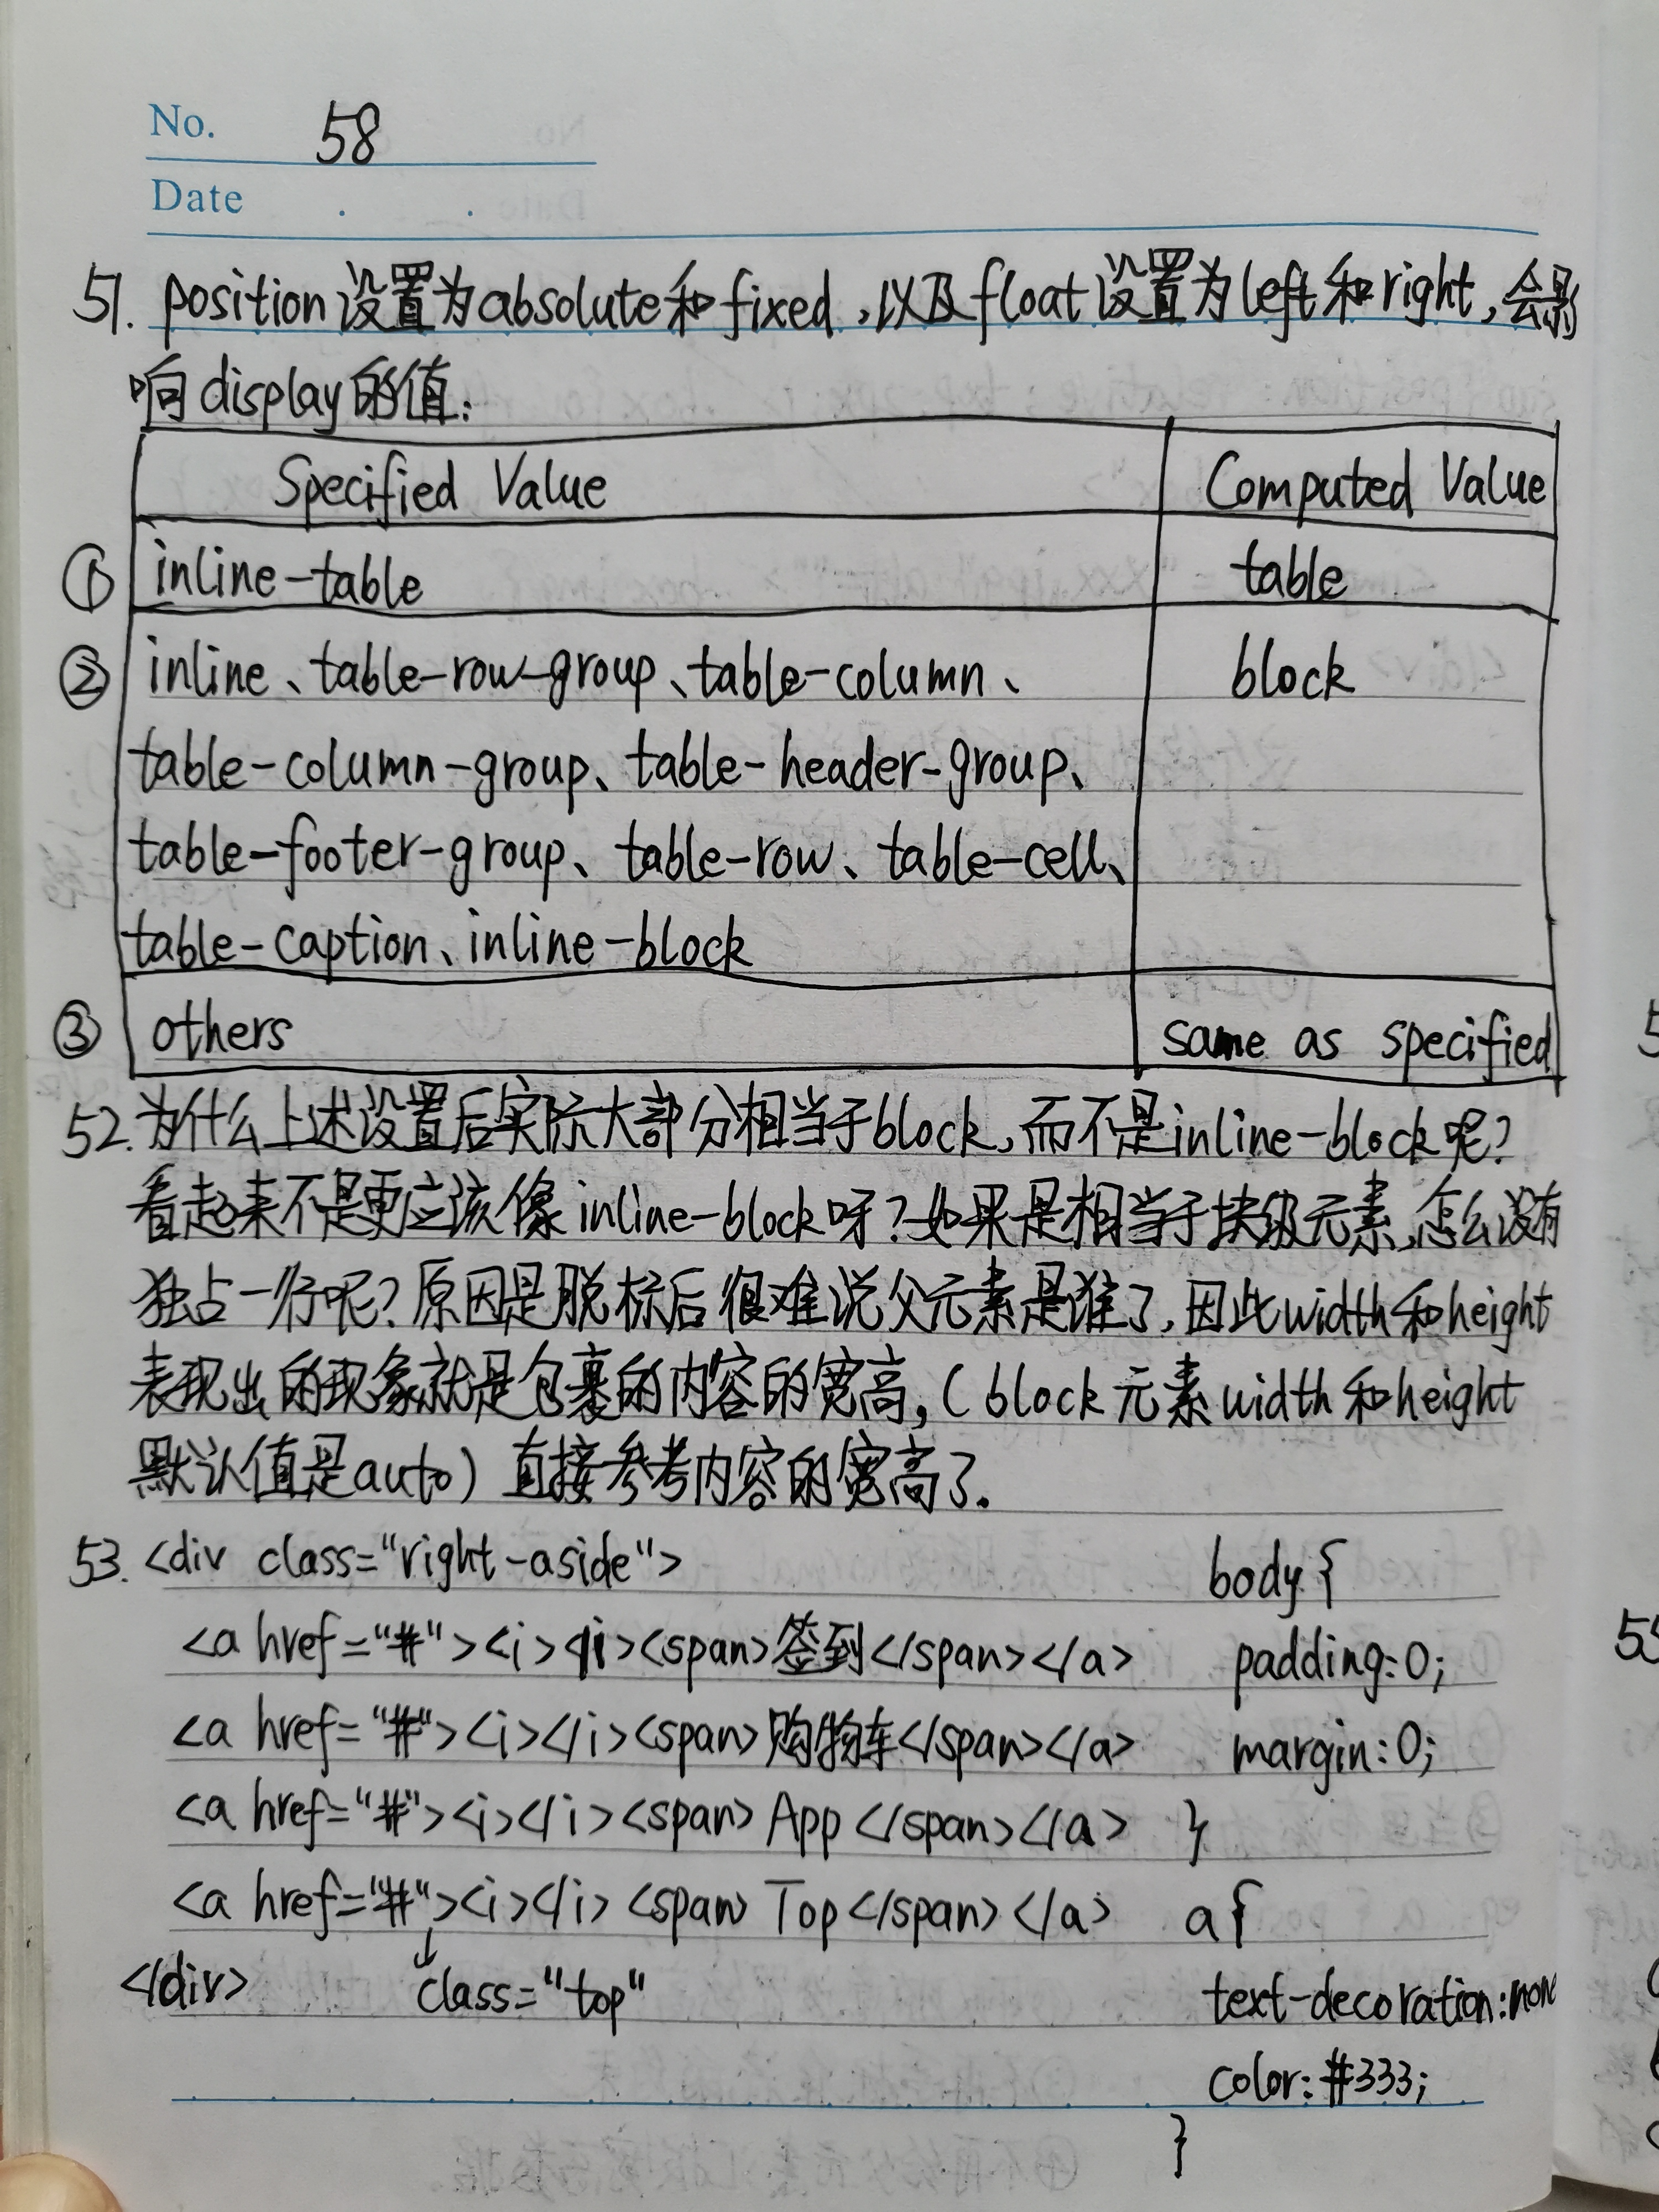 No. 58
Date . .
51. position设置为absolute和fixed,以及float设置为left和right,会影
响display的值:
Specified Value Computed Value
① inline-table table
② inline、table-row-group、table-column、 block
table-column-group、table-header-group、
table-footer-group、table-row、table-cell、
table-caption、inline-block
③ others same as specified
52. 为什么上述设置后实际大部分相当于block,而不是inline-block呢?
看起来不是更应该像inline-block呀?如果是相当于块级元素,怎么没有
独占一行呢?原因是脱标后很难说父元素是谁了,因此width和height
表现出的现象就是包裹的内容的宽高,(block元素width和height
默认值是auto)直接参考内容的宽高了.
53. <div class="right-aside"> body{
<a href="#"><i></i><span>签到</span></a> padding:0;
<a href="#"><i></i><span>购物车</span></a> margin:0;
<a href="#"><i></i><span>App</span></a> }
<a href="#"><i></i><span>Top</span></a> a{
</div> ↓class="top" text-decoration:none
color:#333;
}